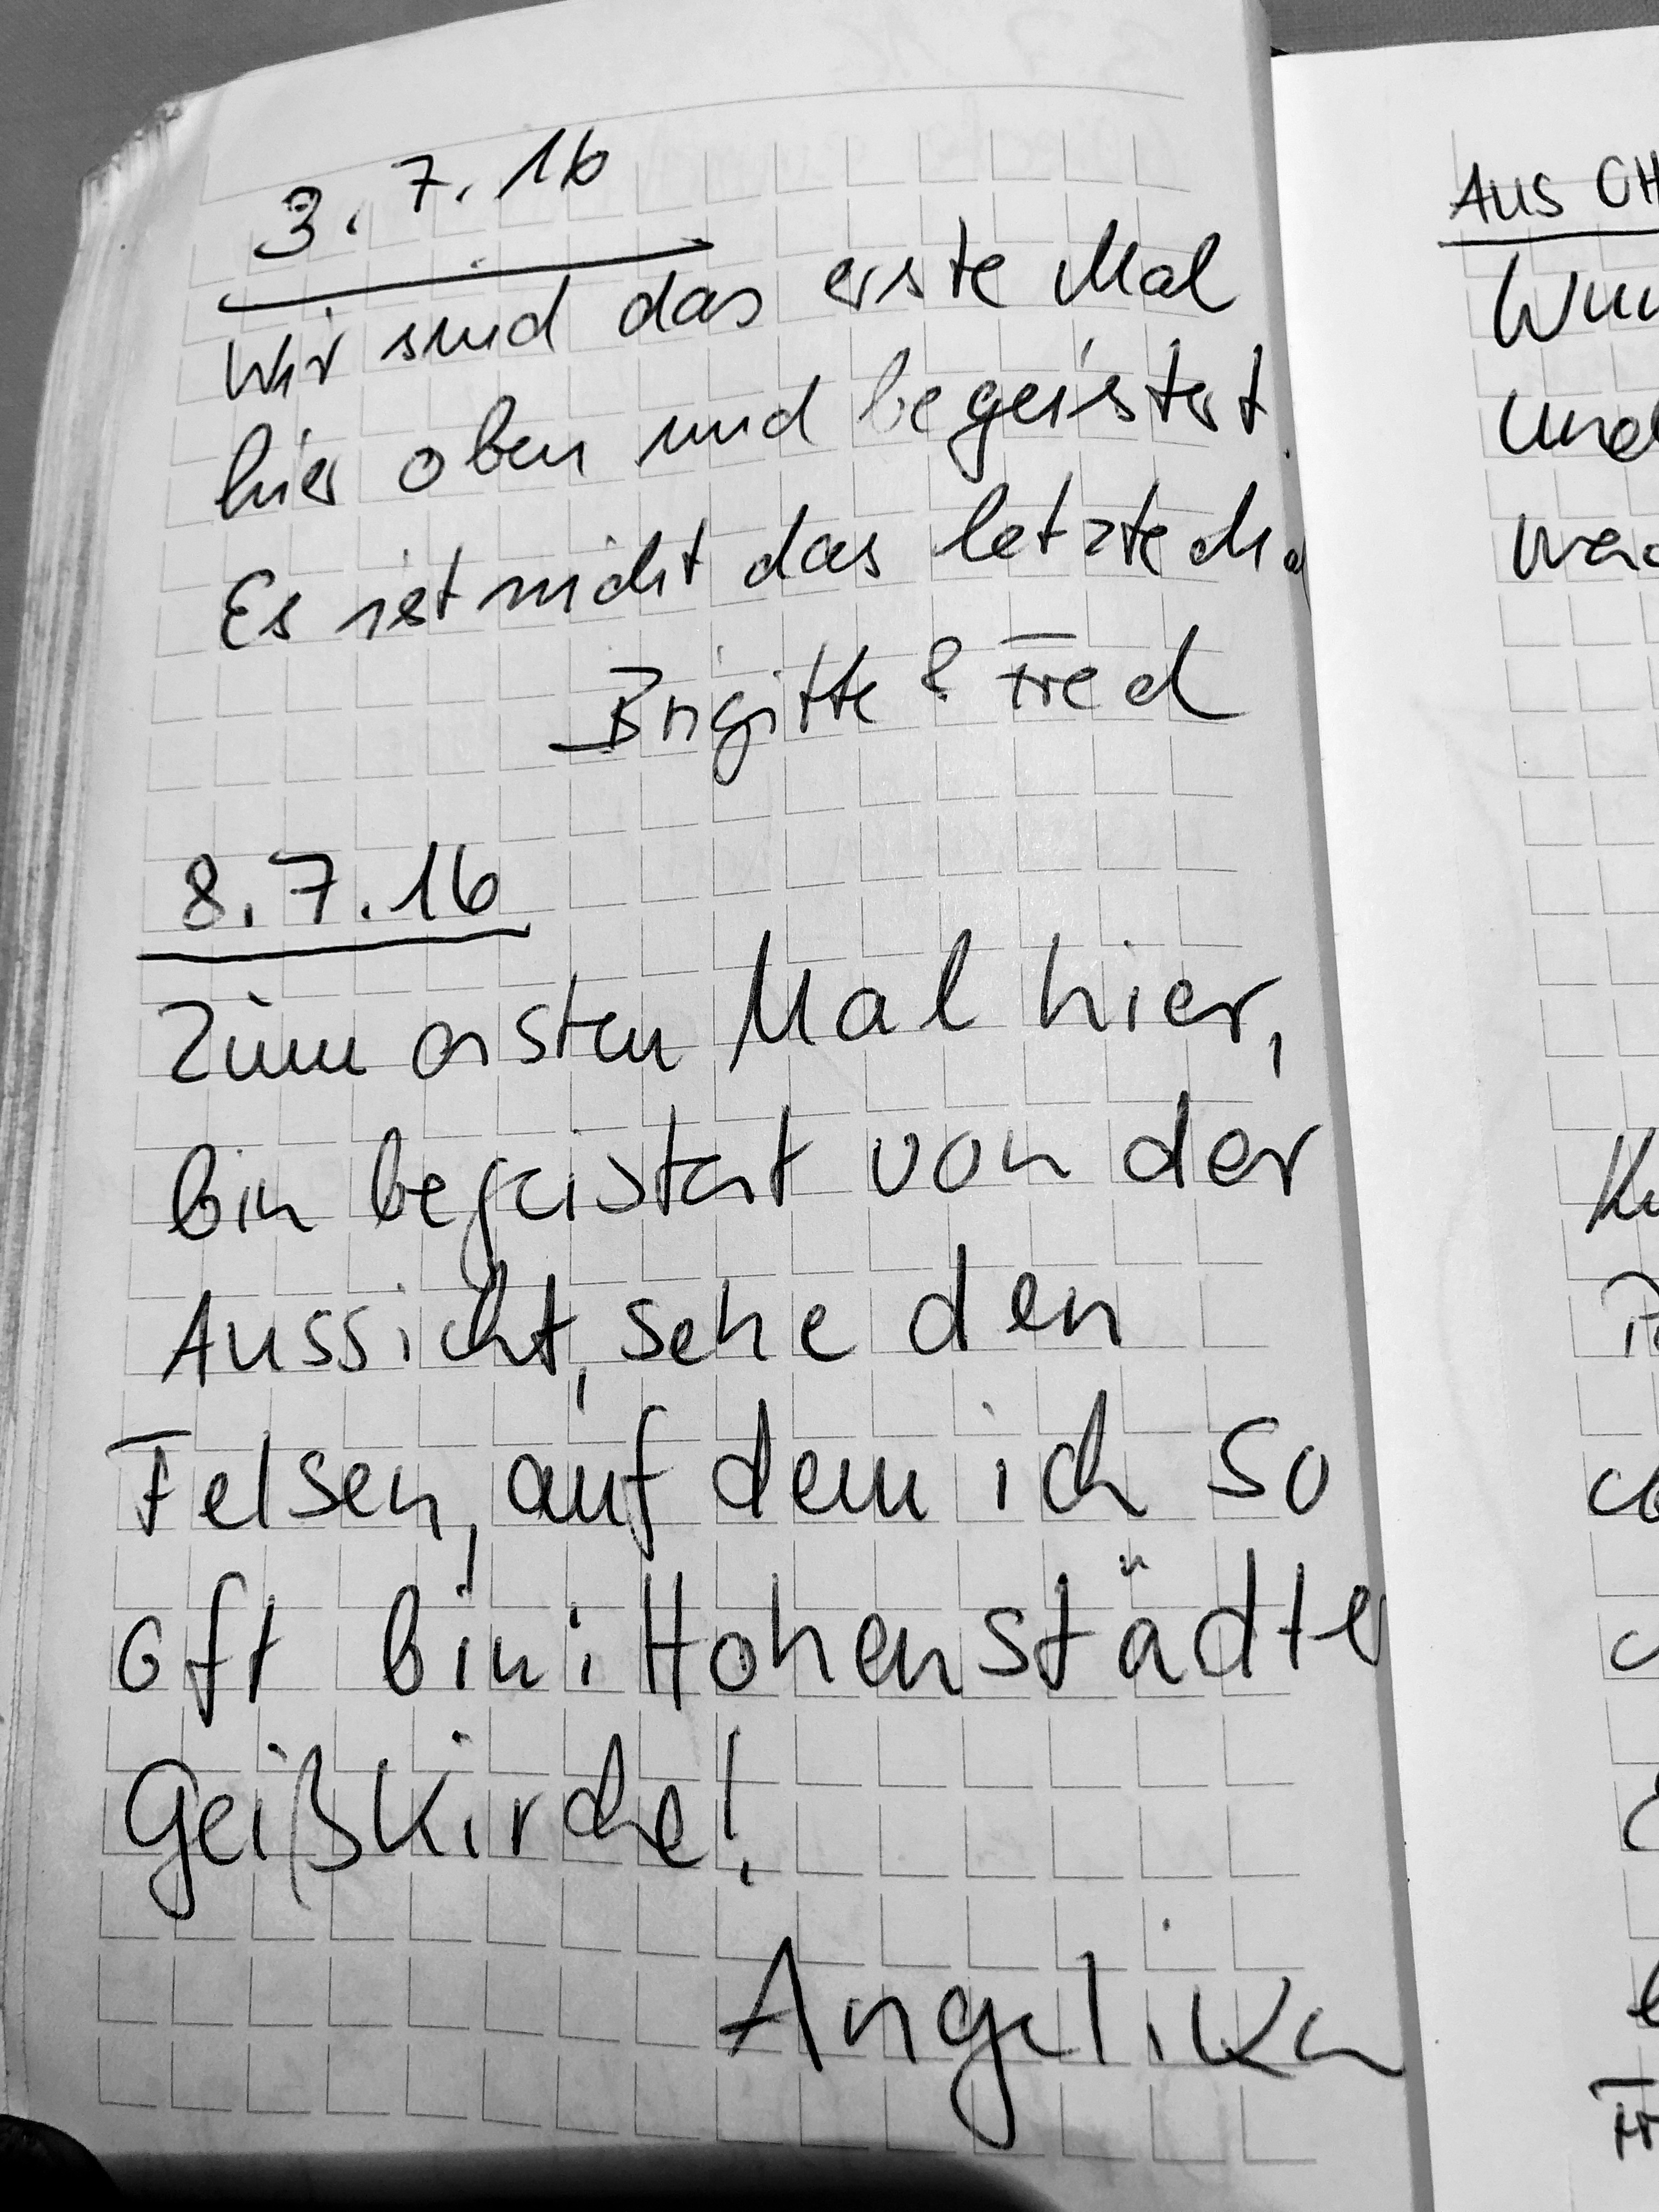 3.7.16
Wir sind das erste Mal
hier oben und begeistert.
Es ist nicht das letzte
Brigitte & Fred
8.7.16
Zum ersten Mal hier,
bin begeistert von der
Aussicht, sehe den
Felsen, auf dem ich so
oft bin: Hohenstädter
Geißkirche!
Angelika
AUS
und